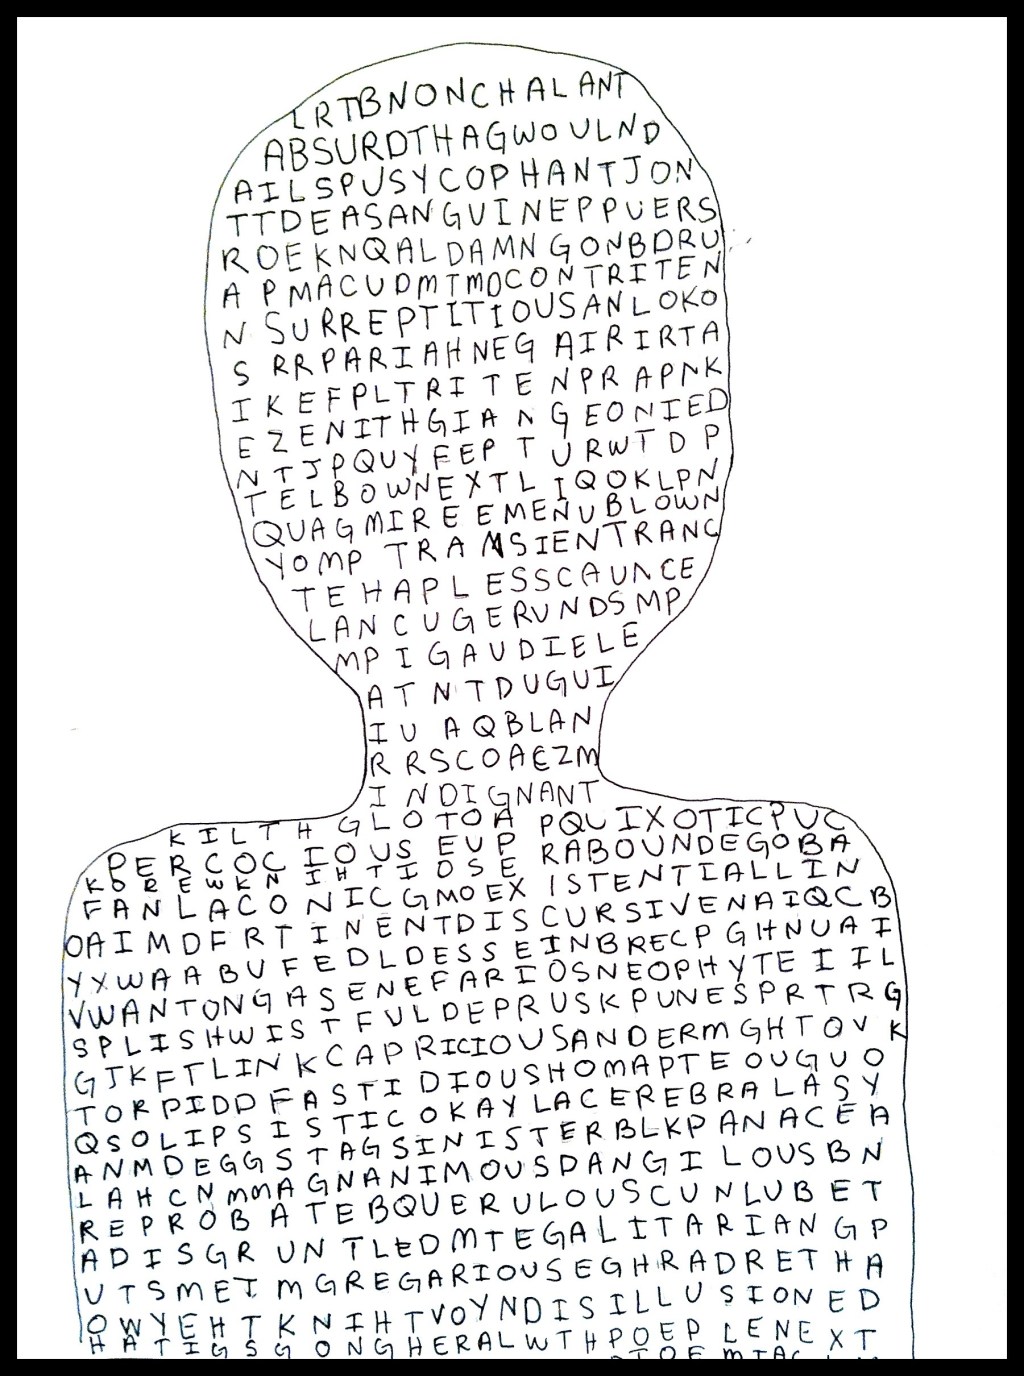 LRTBNONCHALANT
ABSURDTHAGWOULND
AILSPUSYCOPHANTJON
TTDEASANGUINEPPUERS
ROEKNQALDAMNGONBDRU
APMACUDMTMOCONTRITEN
NSURREPTITIOUSANLOKO
SRRPARIAHNEGAIRIRTA
IKEFPLTRITENPRAPNK
EZENITHGIANGEONIED
NTJPQUYFEPTURWTDP
TELBOWNEXTLIQOKLPN
QUAGMIREEMENUBLOWN
YOMPTRANSIENTRANC
TEHAPLESSCAUNCE
LANCUGERUNDSMP
MPIGAUDIELE
ATNTDUGUI
IUAQBLAN
RRSCOAEZM
INDIGNANT
KILTHGLOTOAPQUIXOTICPUC
PERCOCIOUSEUPRABOUNDEGOBA
KOREWKNIHTIDSE
FANLACONICGMOEXISTENTIALLIN
OAIMDFRTINENTDISCURSIVENAIQCB
YXWAABUFEDLDESSEINBRECPGHNUAI
VWANTONGASENEFARIOSNEOPHYTEIIL
SPLISHWISTFULDEPRUSKPUNESPRTRG
GJKFTLINKCAPRICIOUSANDERMGHTOVK
TORPIDDFASTIDIOUSHOMAPTEOUGUO
QSOLIPSISTICOKAYLACEREBRALASY
ANMDEGGSTAGSINISTERBLKPANACEA
LAHCNMMAGNANIMOUSDANGILOUSBN
REPROBATEBQUERULOUSCUNLUBET
ADISGRUNTLEDMTEGALITARIANGP
UTSMETMGREGARIOUSEGHRADRETHA
OWYEHTKNIHTVOYNDISILLUSIONED
HATIGSGONGHERALWTHPOEPLENEXT